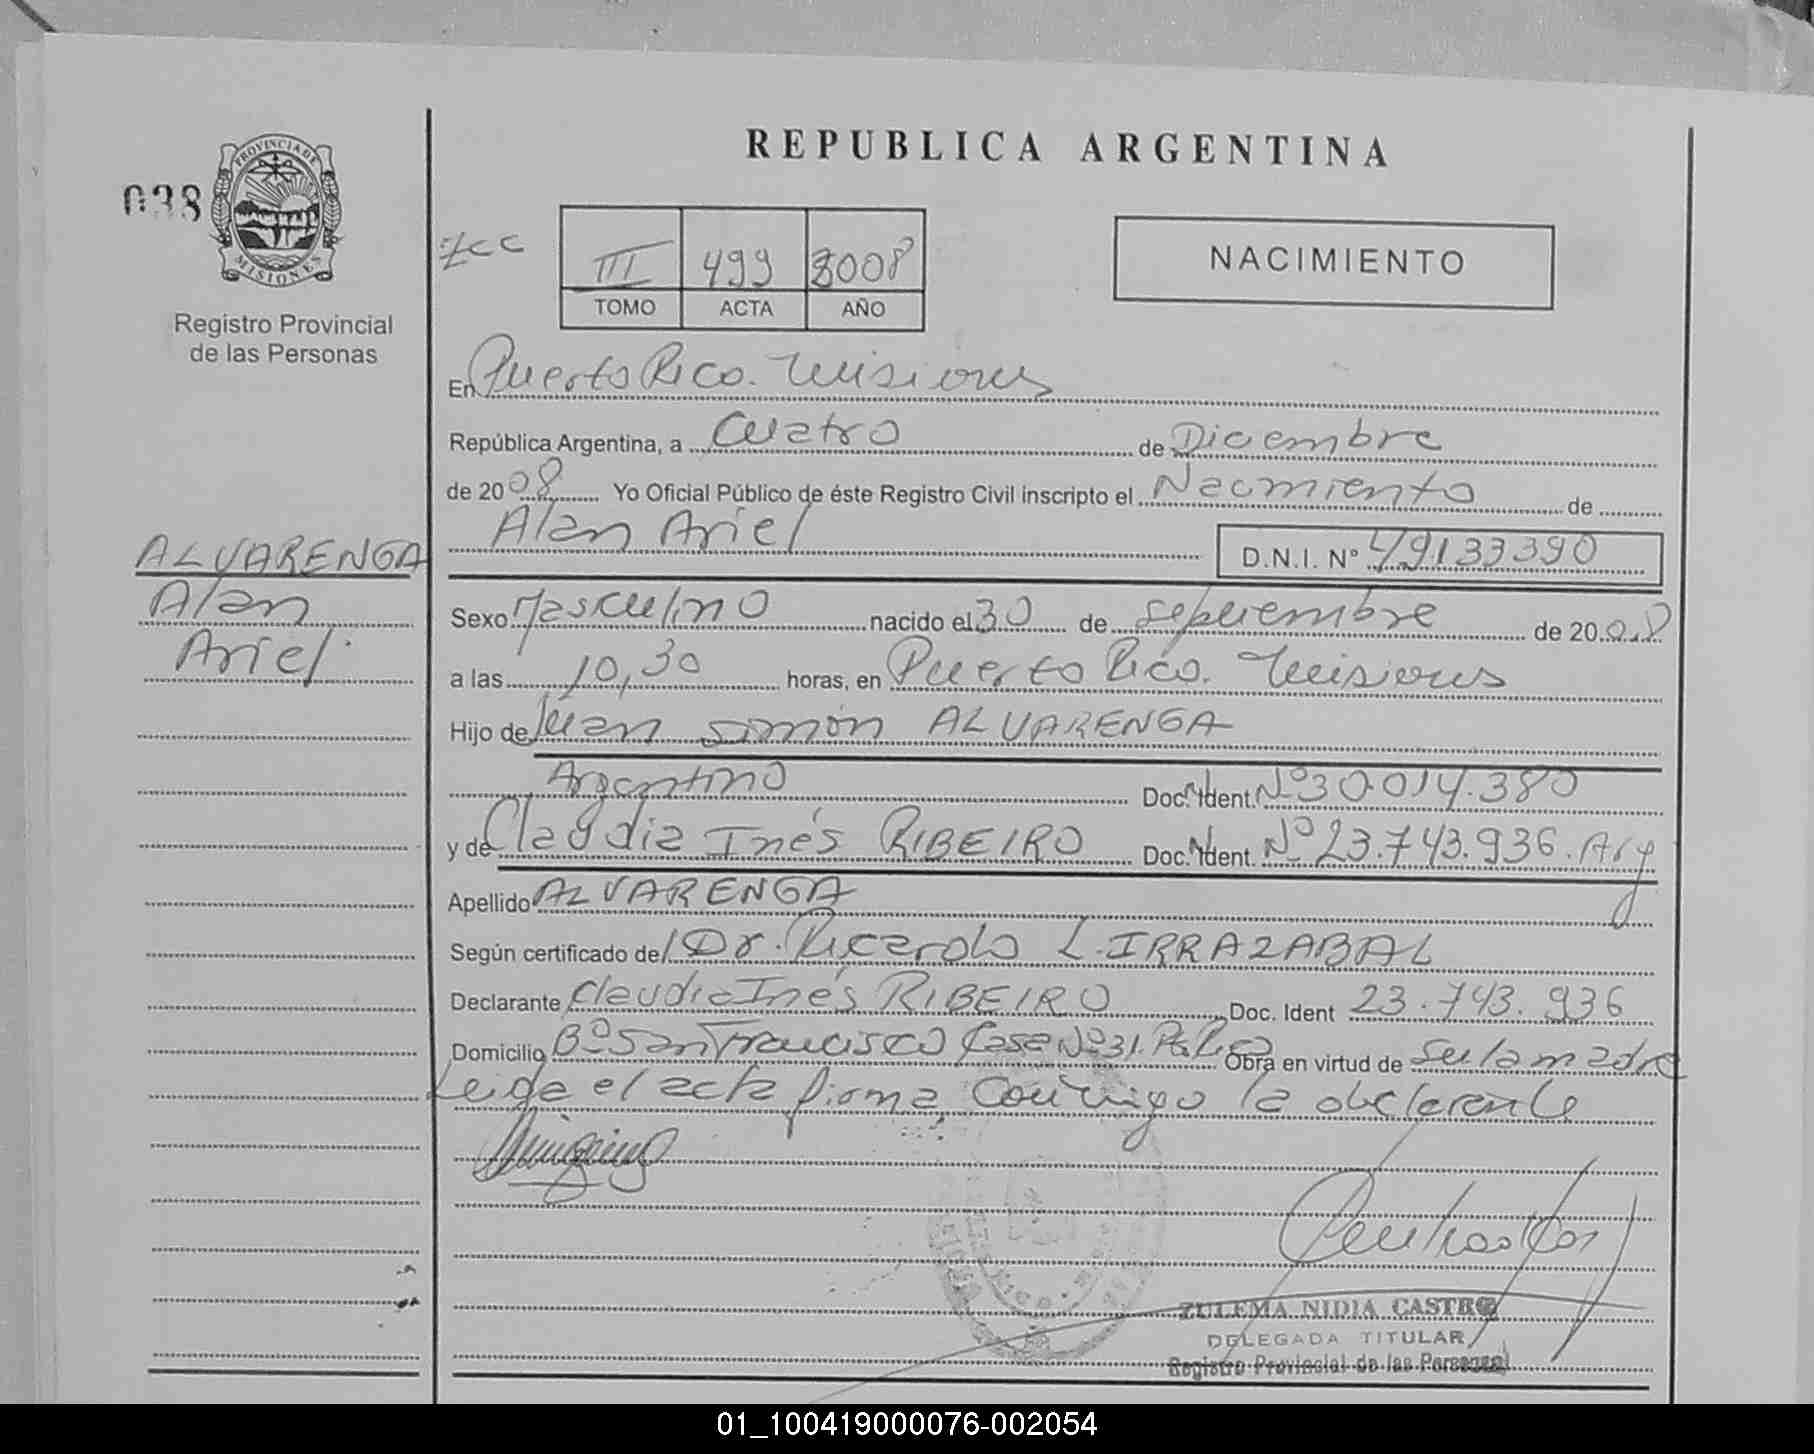 REPUBLICA ARGENTINA
PROVINCIA DE
MISIONES
038
Registro Provincial
de las Personas
zcc
III 499 2008
TOMO ACTA AÑO
NACIMIENTO
En Puerto Rico. Misiones
República Argentina, a Cuatro de Diciembre
de 2008 Yo Oficial Público de éste Registro Civil inscripto el Nacimiento de
Alan Ariel D.N.I. Nº 49133390
ALVARENGA
Alan
Ariel
Sexo Masculino nacido el 30 de septiembre de 2008
a las 10,30 horas, en Puerto Rico. Misiones
Hijo de Juan Simón ALVARENGA
Argentino Doc. Ident. Nº 30.014.380
y de Claudia Inés RIBEIRO Doc. Ident. Nº 23.743.936. Arg
Apellido ALVARENGA
Según certificado del Dr. Ricardo L. IRRAZABAL
Declarante Claudia Inés RIBEIRO Doc. Ident 23.743.936
Domicilio Bº San Francisco Casa Nº 31. Pto. Rico Obra en virtud de Ser la madre
Leida el acta firma conmigo la declarante
ZULEMA NIDIA CASTRO
DELEGADA TITULAR
Registro Provincial de las Personas
01_100419000076-002054